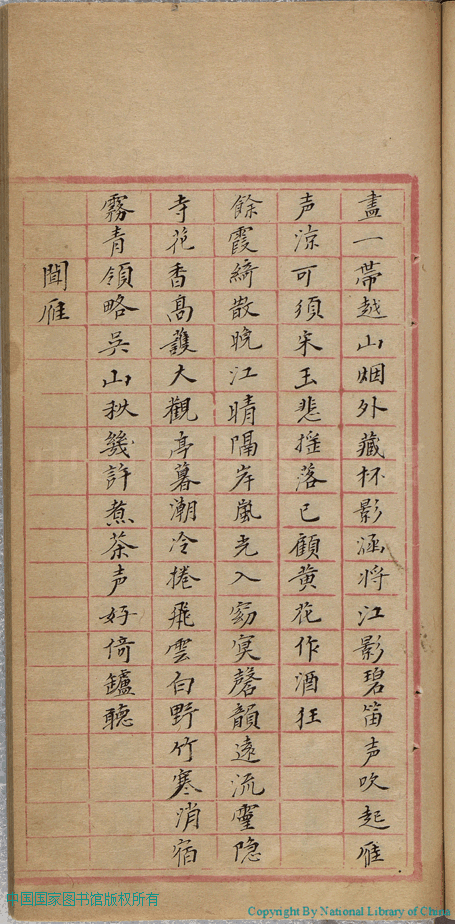 畫一帶越山烟外藏杯影涵将江影碧笛声吹起雁
声涼可須宋玉悲摇落已顧黄花作酒狂
餘霞綺散晚江晴隔岸嵐光入窈冥磬韻遠流靈隐
寺花香高護大觀亭暮潮冷捲飛雲白野竹寒消宿
霧青領略吳山秋幾許煮茶声好倚罏聽
聞雁
中国国家图书馆版权所有
Copyright By National Library of China